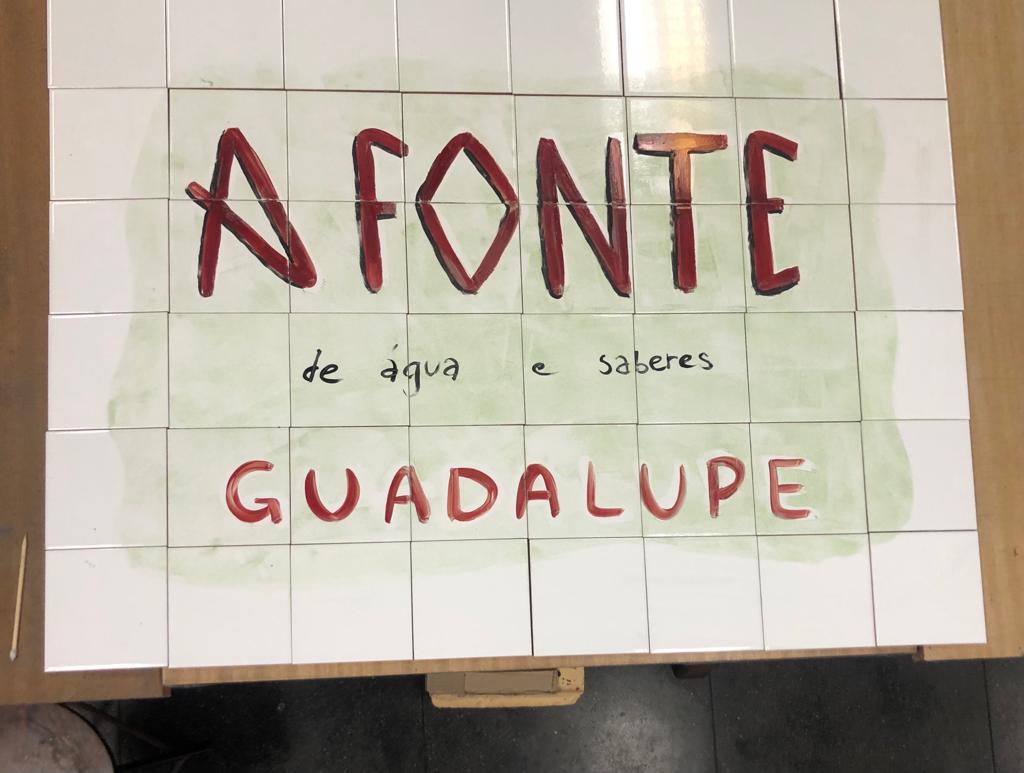 A FONTE
de água e saberes
GUADALUPE